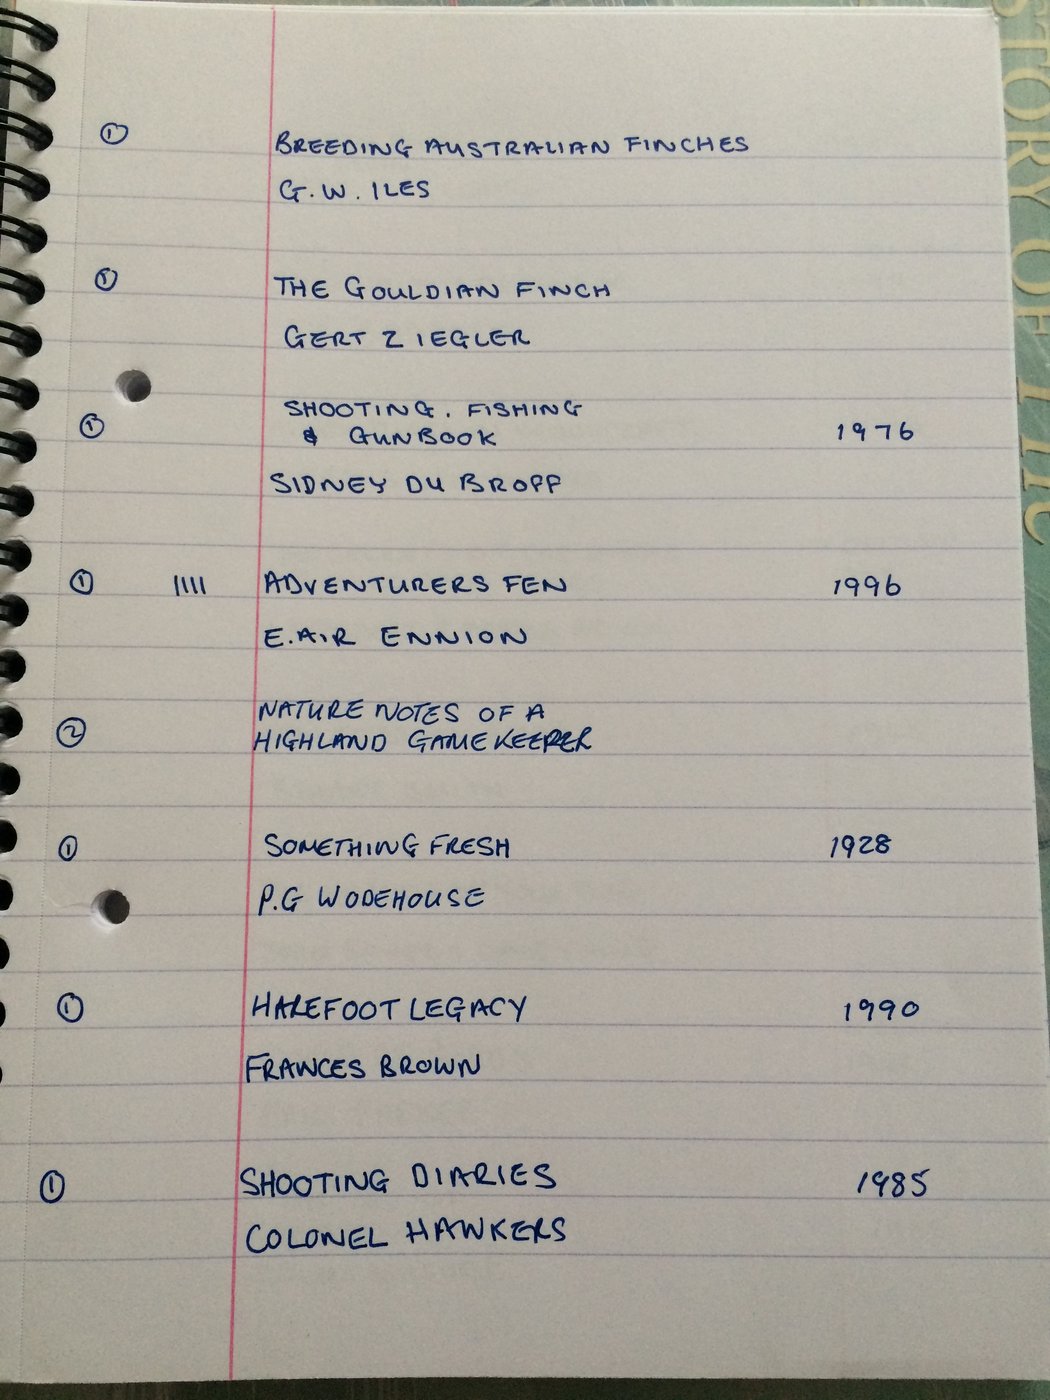 ① BREEDING AUSTRALIAN FINCHES
G.W. ILES
① THE GOULDIAN FINCH
GERT ZIEGLER
SHOOTING. FISHING
① & GUNBOOK 1976
SIDNEY DU BROFF
① IIII ADVENTURERS FEN 1996
E.AIR ENNION
NATURE NOTES OF A
② HIGHLAND GAMEKEEPER
① SOMETHING FRESH 1928
P.G WODEHOUSE
① HAREFOOT LEGACY 1990
FRANCES BROWN
① SHOOTING DIARIES 1985
COLONEL HAWKERS
STORY OF